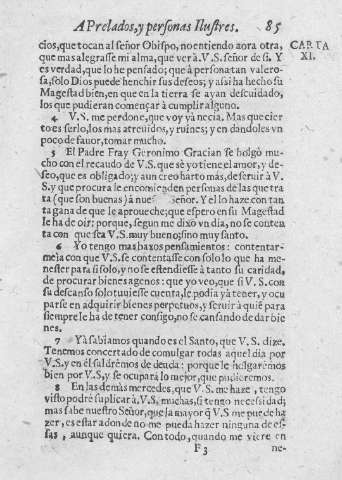 A Prelados, y personas Ilustres. 85
cios, que tocan al señor Obispo, no entiendo aora otra,
que mas alegrasse mi alma, que ver à V.S. señor de si. Y
es verdad, que lo he pensado; que à persona tan valero-
sa, solo Dios puede henchir sus deseos; y assi ha hecho su
Magestad bien, en que en la tierra se ayan descuidado,
los que pudieran començar à cumplir alguno.
CARTA
XI.
4 V.S. me perdone, que voy yà necia. Mas que cier-
to es serlo, los mas atrevidos, y ruines; y en dandoles vn
poco de favor, tomar mucho.
5 El Padre Fray Geronimo Gracian se holgò mu-
cho con el recaudo de V.S. que sè yo tiene el amor, y de-
seo, que es obligado; y aun creo harto màs, de servir à V.
S. y que procura le encomienden personas de las que tra-
ta (que son buenas) à nuestro Señor. Y el lo haze con tan-
ta gana de que le aproveche; que espero en su Magestad
le ha de oir: porque, segun me dixo vn dia, no se conten-
ta con que sea V.S. muy bueno, sino muy santo.
6 Yo tengo mas baxos pensamientos: contentar-
meia con que V.S. se contentasse con solo lo que ha me-
nester para si solo, y no se estendiesse à tanto su caridad,
de procurar bienes agenos: que yo veo, que si V.S. con
su descanso solo tuviesse cuenta, le podia yà tener, y ocu-
parse en adquirir bienes perpetuos, y servir à quiē para
siempre le ha de tener consigo, no se cansando de dar bie-
nes.
7 Yà sabiamos quando es el Santo, que V.S. dize.
Tenemos concertado de comulgar todas aquel dia por
V.S. y en èl saldrèmos de deuda: porque le holgarèmos
bien por V.S. y se ocuparà lo mejor, que pudieremos.
8 En las demàs mercedes, que V.S. me haze, tengo
visto podrè suplicar à V.S. muchas, si tengo necessidad;
mas sabe nuestro Señor, que la mayor q̃ V.S. me puede ha-
zer, es estar adonde no me pueda hazer ninguna de es-
sas, aunque quiera. Con todo, quando me viere en
F 3 ne-